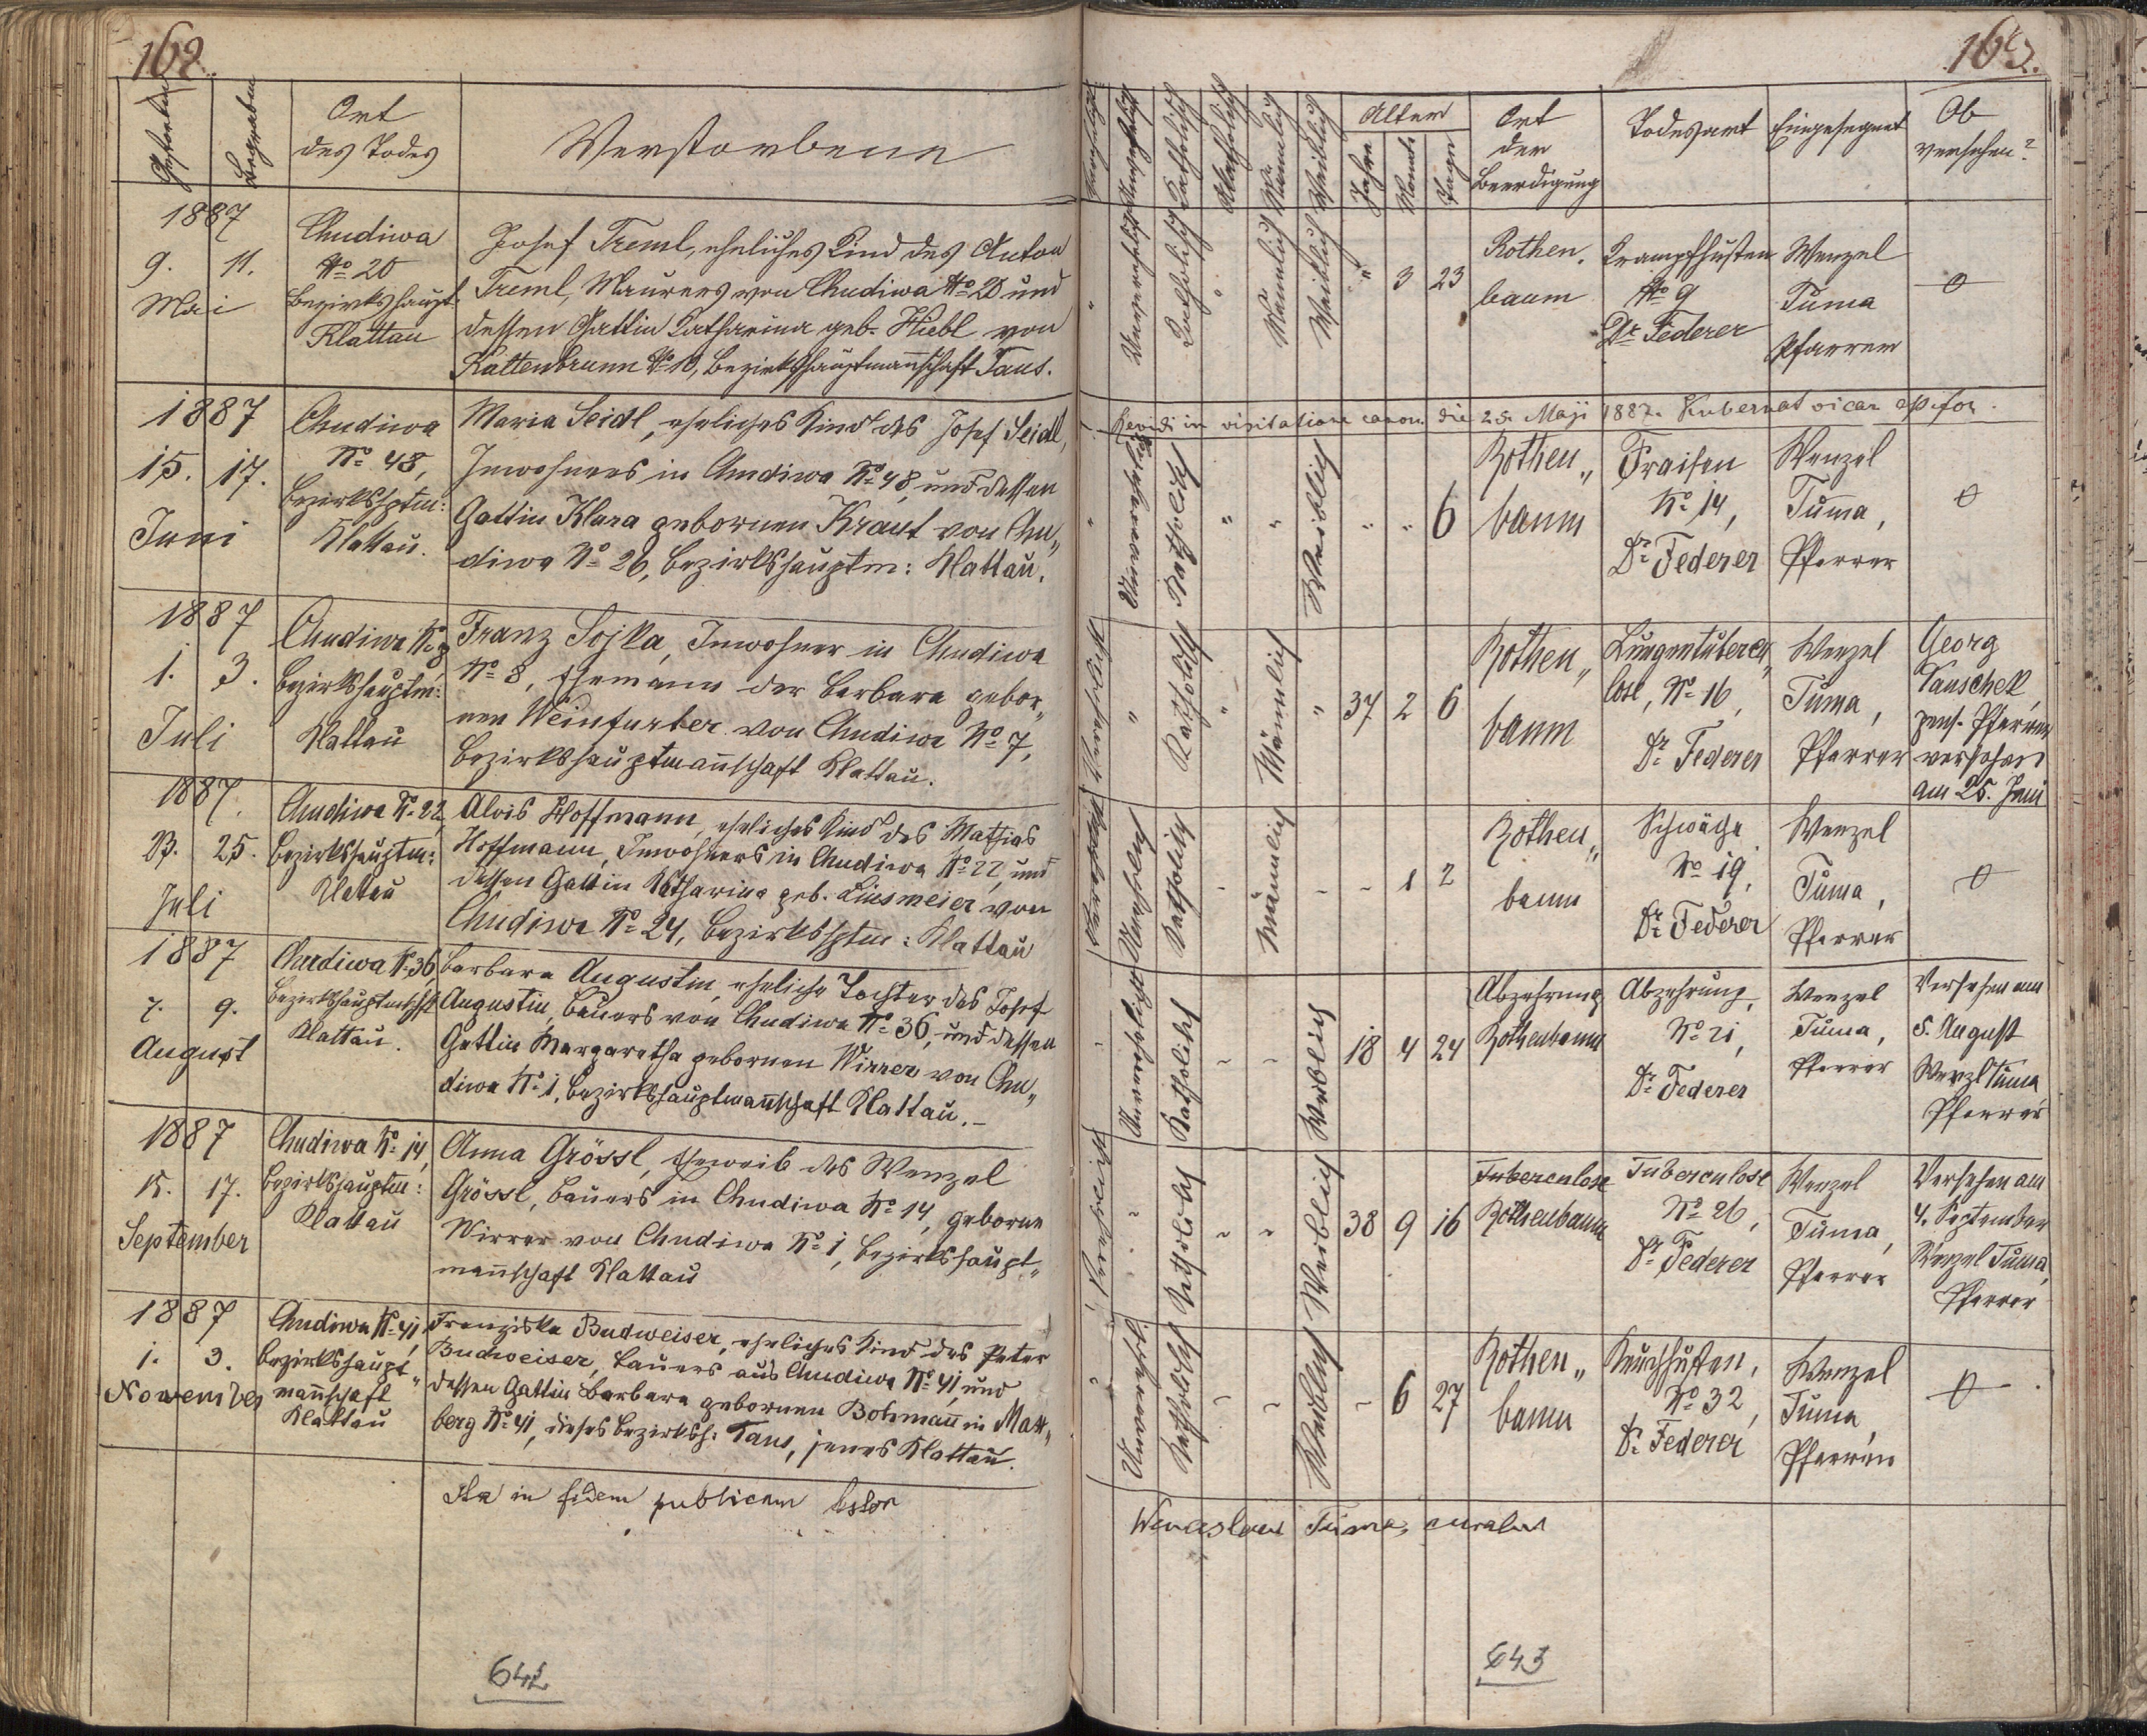 162.
Gestorben
Begraben
Ort
des Todes
Verstorbene
1887
9. 11.
Mai
Chudiwa
No 20
Bezirkshaupt.
Klattau
Josef Treml, eheliches Kind des Anton
Treml, Maurers von Chudiwa No 20 und
dessen Gattin Katharina geb. Hiebl von
Kaltenbrunn No 10, Bezirkshauptmannschaft Taus.
1887
15. 17.
Juni
Chudiwa
No 48,
Bezirkshptm:
Klattau.
Maria Seidl, eheliches Kind des Josef Seidl,
Inwohners in Chudiwa No 48, und dessen
Gattin Klara gebornen Kraut von Chu„
diwa No 26, Bezirkshauptm: Klattau.
1887
1. 3.
Juli
Chudiwa No 8
Bezirkshauptm:
Klattau
Franz Sojka, Inwohner in Chudiwa
No 8, Ehemann der Barbara gebor„
nen Weinfurter von Chudiwa No 7,
Bezirkshauptmannschaft Klattau.
1887.
23. 25.
Juli
Chudiwa No 22,
Bezirkshauptm:
Klattau
Alois Hoffmann, eheliches Kind des Mathias
Hoffmann, Inwohners in Chudiwa No 22, und
dessen Gattin Katharina geb. Linsmeier von
Chudiwa No 24, Bezirkshptm: Klattau
1887
7. 9.
August
Chudiwa No 36,
Bezirkshauptmschft
Klattau.
Barbara Augustin, eheliche Tochter des Josef
Augustin, Bauers von Chudiwa No 36, und dessen
Gattin Margaretha gebornen Wirrer von Chu„
diwa No 1, Bezirkshauptmannschaft Klattau.–
1887
15. 17.
September
Chudiwa No 14,
Bezirkshauptm:
Klattau
Anna Grössl, Eheweib des Wenzel
Grössl, Bauers in Chudiwa No 14, geborne
Wirrer von Chudiwa No 1, Bezirkshaupt„
mannschaft Klattau
1887
1. 3.
November
Chudiwa No 41,
Bezirkshaupt„
mannschaft
Klattau
Franziska Budweiser, eheliches Kind des Peter
Budweiser, Bauers aus Chudiwa No 41, und
dessen Gattin Barbara gebornen Bohmann in Max„
berg No 41, dieses Bezirksh: Taus, jenes Klattau.
Ita in fidem publicam testor
642
163.
Verehelicht
Unverehelicht
Katholisch
Akatholisch
Männlich
Weiblich
Alter
Jahre
Monate
Tage
Ort
der
Beerdigung
Todesart
Eingesegnet
Ob
versehen?
" Unverehelicht Katholisch " Männlich Weiblich " 3 23
Rothen.
baum
Krampfhusten
No 9
Dr Federer
Wenzel
Tuma
Pfarrer
0
Revidi in visitatione canon. die 25. Maji 1887. Kubernat vicar
" Unverehelicht Katholisch " " Weiblich " " 6
Rothen„
baum
Fraisen
No 14,
Dr Federer
Wenzel
Tuma,
Pfarrer
0
Verehelicht " Katholisch " Männlich " 37 2 6
Rothen„
baum
Lungentuberku„
lose, No 16,
Dr Federer
Wenzel
Tuma,
Pfarrer
Georg
Kauschek,
pens. Pfarrer
versehen
am 25. Juni
Katholisch - Männlich - - 1 2
Rothen„
baum
Schwäche
No 19,
Dr Federer
Wenzel
Tuma,
Pfarrer
0
- Unverehelicht Katholisch - - Weiblich 18 4 24
Abzehrung
Rothenbaum
Abzehrung,
No 21,
Dr Federer
Wenzel
Tuma,
Pfarrer
Versehen am
5. August
Wenzl Tuma
Pfarrer
Verehelicht - Katholisch - - Weiblich 38 9 16
Tuberculose
Rothenbaum
Tuberculose
No 26,
Dr Federer
Wenzel
Tuma,
Pfarrer
Versehen am
4. September
Wenzel Tuma,
Pfarrer
" Unverehel. Katholisch - - Weiblich - 6 27
Rothen„
baum
Keuchhusten,
No 32,
Dr Federer
Wenzel
Tuma,
Pfarrer
0
Wenceslaus Tuma, curatus
643